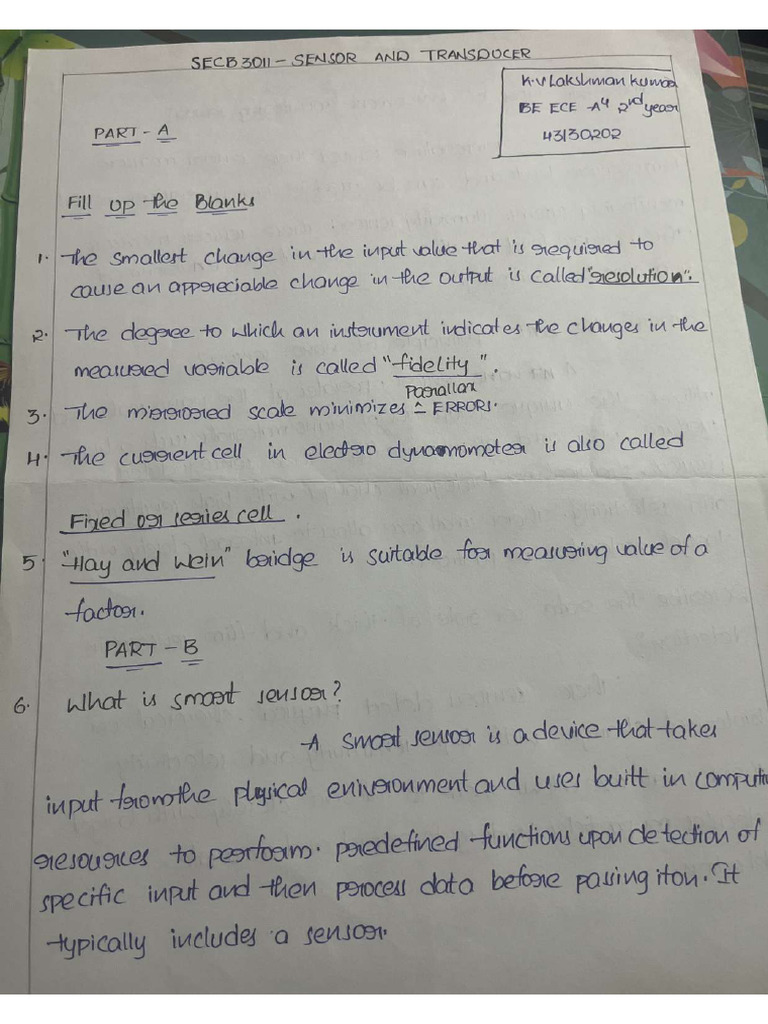 SECB3011 - SENSOR AND TRANSDUCER
K.V Lakshman Kumar
BE ECE -A4 2nd year
43130202
PART - A
Fill up the Blanks
1. The smallest change in the input value that is required to
cause an appreciable change in the output is called "resolution".
2. The degree to which an instrument indicates the changes in the
measured variable is called "fidelity".
Parallax
3. The mirrored scale minimizes ^ ERRORS.
4. The current cell in electro dynamometer is also called
Fixed or series cell.
5. "Hay and Wein" bridge is suitable for measuring value of a
factor.
PART - B
6. What is smart sensor?
A smart sensor is a device that takes
input from the physical enivironment and uses built in computi
resources to perform. predefined functions upon detection of
specific input and then process data before passing iton. It
typically includes a sensor.